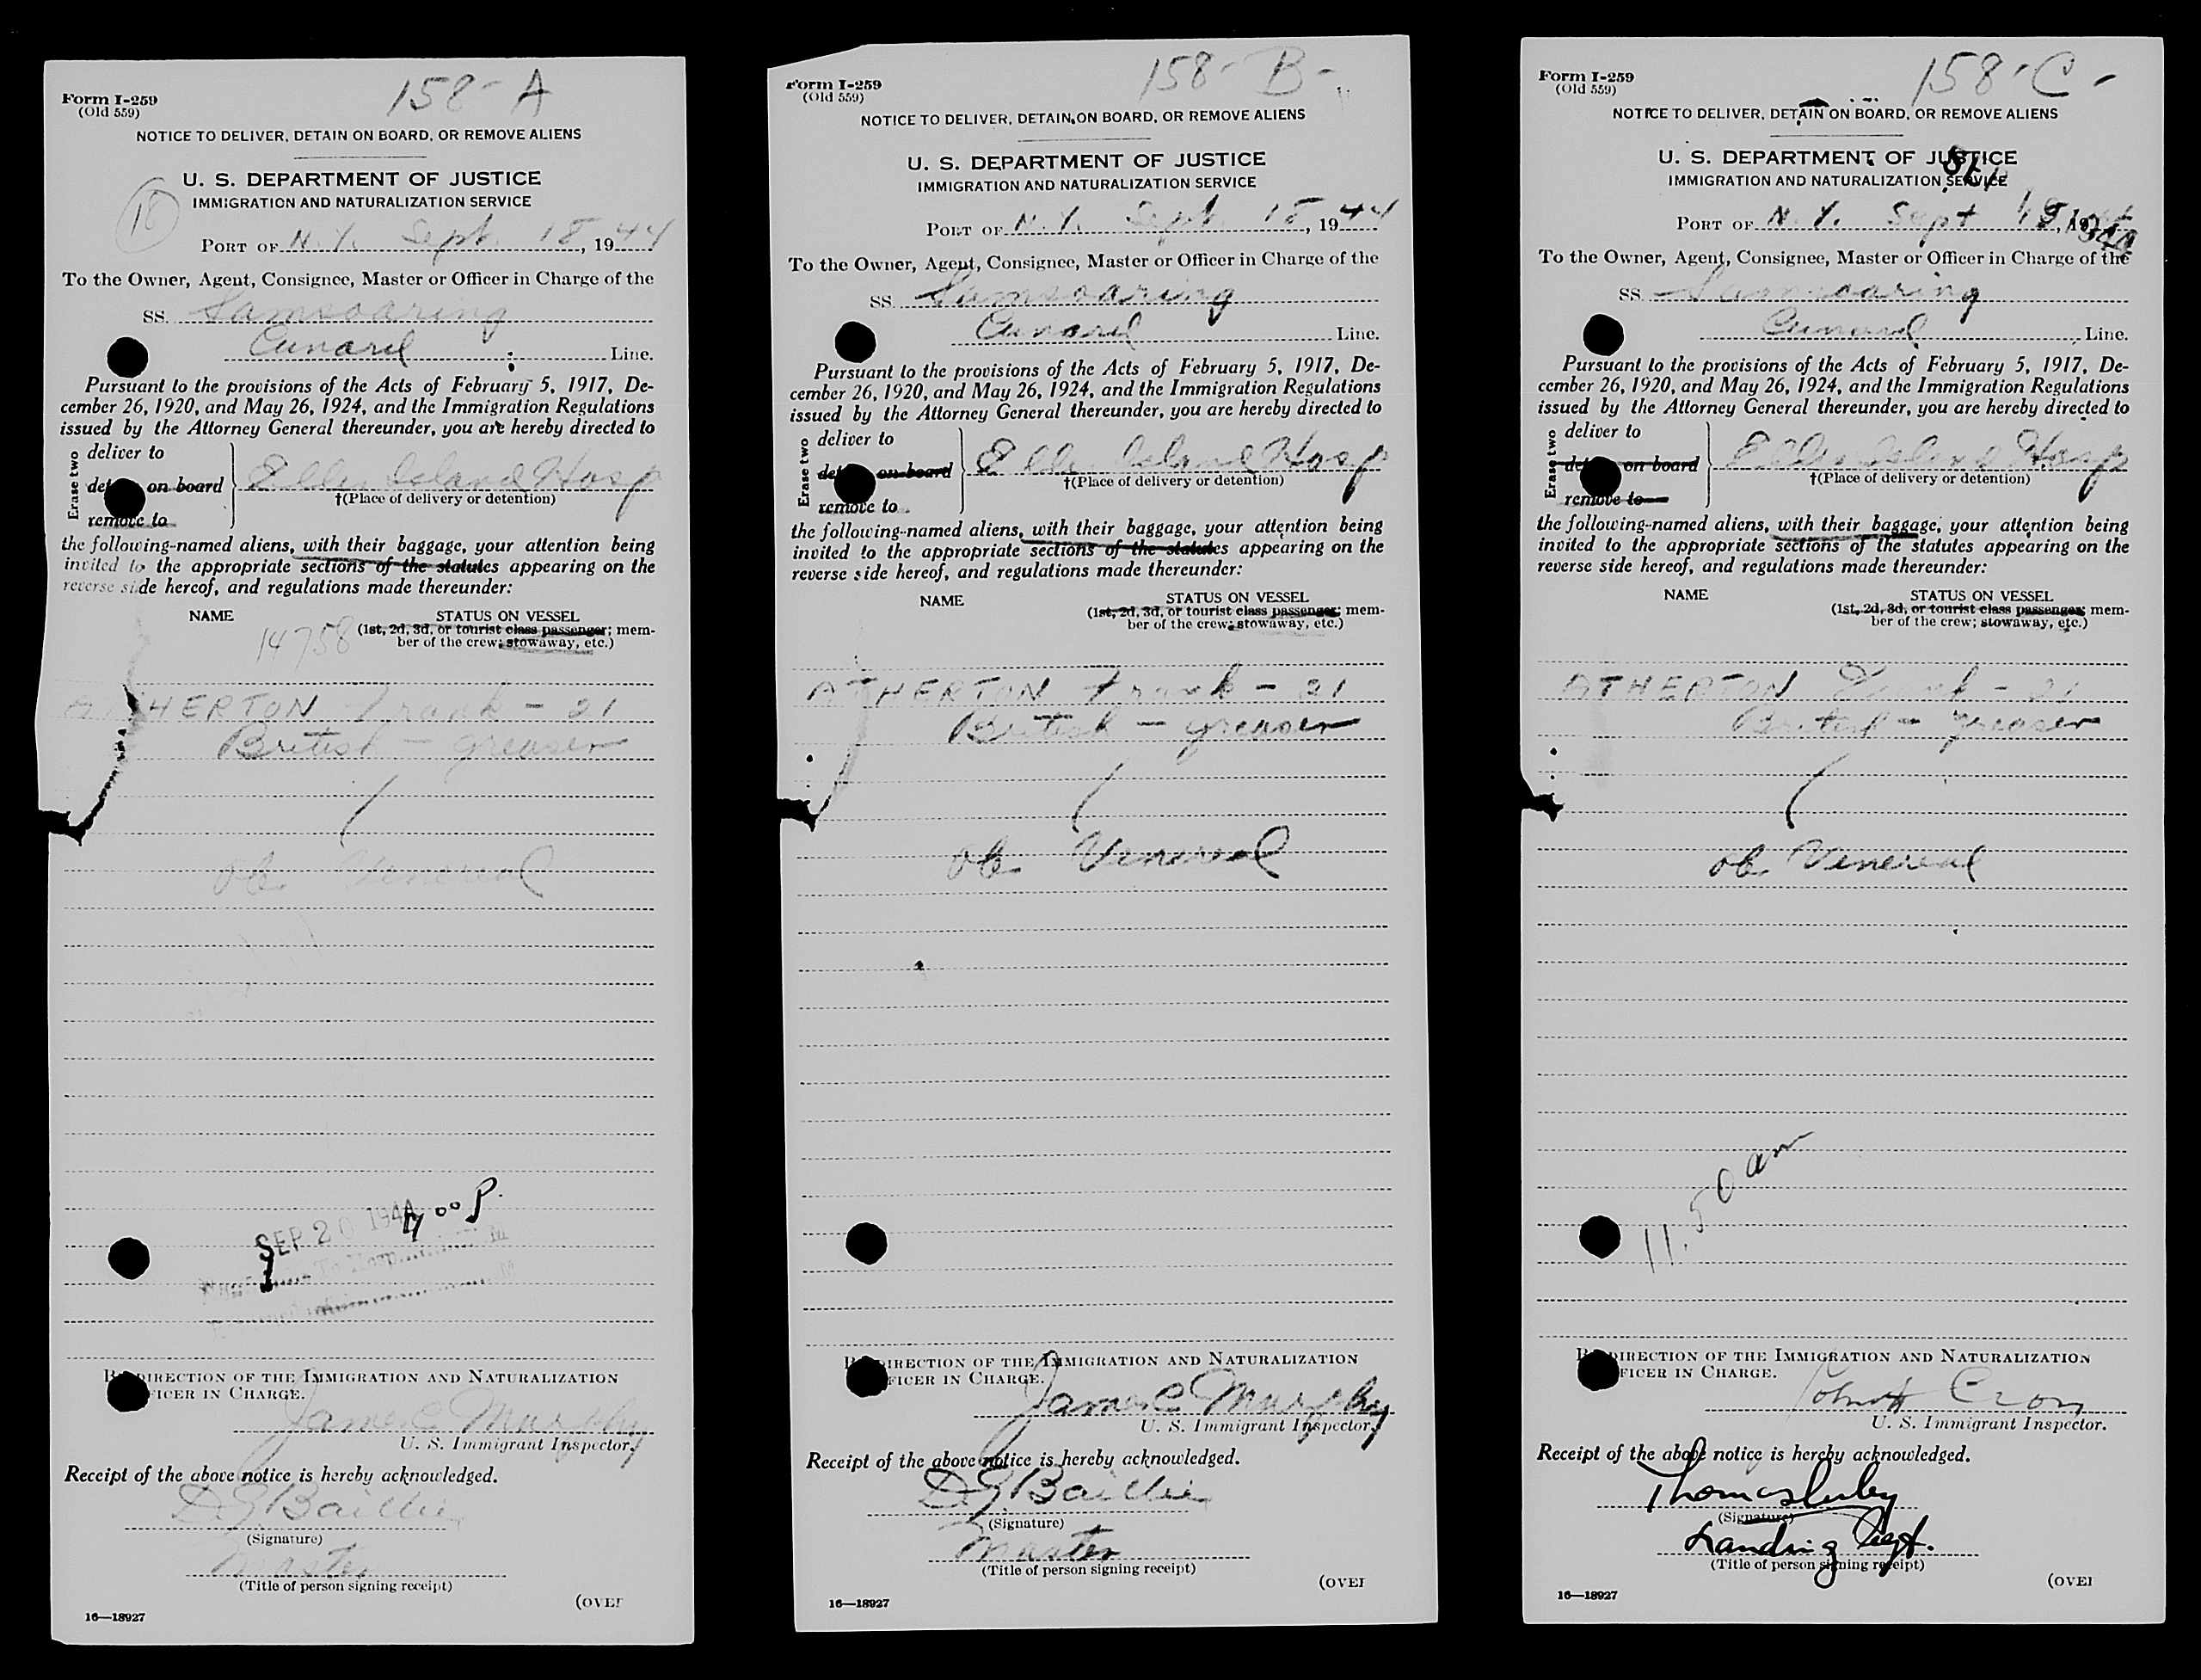 158-A
Form I-259
(Old 559)
NOTICE TO DELIVER, DETAIN ON BOARD, OR REMOVE ALIENS
U. S. DEPARTMENT OF JUSTICE
IMMIGRATION AND NATURALIZATION SERVICE
18
PORT OF N. Y. Sept 18, 1944
To the Owner, Agent, Consignee, Master or Officer in Charge of the
SS. Samsoaring
Cunard Line.
Pursuant to the provisions of the Acts of February 5, 1917, De-
cember 26, 1920, and May 26, 1924, and the Immigration Regulations
issued by the Attorney General thereunder, you are hereby directed to
Erase two
deliver to
on board
remove to
Ellis Island Hosp
†(Place of delivery or detention)
the following-named aliens, with their baggage, your attention being
invited to the appropriate sections of the statutes appearing on the
reverse side hereof, and regulations made thereunder:
NAME STATUS ON VESSEL
(1st, 2d, 3d, or tourist class passenger; mem-
ber of the crew; stowaway, etc.)
14758
ATHERTON Frank - 21
British - greaser
ob Venereal
SEP 20 1944 4 00 P.
To Hosp
DIRECTION OF THE IMMIGRATION AND NATURALIZATION
FICER IN CHARGE.
James C Murphy
U. S. Immigrant Inspector.
Receipt of the above notice is hereby acknowledged.
D. G. Baillie
(Signature)
Master
(Title of person signing receipt)
(OVER
16—18927
158-B-
Form I-259
(Old 559)
NOTICE TO DELIVER, DETAIN ON BOARD, OR REMOVE ALIENS
U. S. DEPARTMENT OF JUSTICE
IMMIGRATION AND NATURALIZATION SERVICE
PORT OF N. Y. Sept 18, 1944
To the Owner, Agent, Consignee, Master or Officer in Charge of the
SS. Samsoaring
Cunard Line.
Pursuant to the provisions of the Acts of February 5, 1917, De-
cember 26, 1920, and May 26, 1924, and the Immigration Regulations
issued by the Attorney General thereunder, you are hereby directed to
Erase two
deliver to
on board
remove to
Ellis Island Hosp
†(Place of delivery or detention)
the following-named aliens, with their baggage, your attention being
invited to the appropriate sections of the statutes appearing on the
reverse side hereof, and regulations made thereunder:
NAME STATUS ON VESSEL
(1st, 2d, 3d, or tourist class passenger; mem-
ber of the crew; stowaway, etc.)
ATHERTON Frank - 21
British - greaser
ob Venereal
DIRECTION OF THE IMMIGRATION AND NATURALIZATION
FICER IN CHARGE.
James C Murphy
U. S. Immigrant Inspector.
Receipt of the above notice is hereby acknowledged.
D. G. Baillie
(Signature)
Master
(Title of person signing receipt)
(OVER
16—18927
158-C-
Form I-259
(Old 559)
NOTICE TO DELIVER, DETAIN ON BOARD, OR REMOVE ALIENS
U. S. DEPARTMENT OF JUSTICE
IMMIGRATION AND NATURALIZATION SERVICE
PORT OF N. Y. Sept 18, 19
To the Owner, Agent, Consignee, Master or Officer in Charge of the
SS. Samsoaring
Cunard Line.
Pursuant to the provisions of the Acts of February 5, 1917, De-
cember 26, 1920, and May 26, 1924, and the Immigration Regulations
issued by the Attorney General thereunder, you are hereby directed to
Erase two
deliver to
on board
remove to
Ellis Island Hosp
†(Place of delivery or detention)
the following-named aliens, with their baggage, your attention being
invited to the appropriate sections of the statutes appearing on the
reverse side hereof, and regulations made thereunder:
NAME STATUS ON VESSEL
(1st, 2d, 3d, or tourist class passenger; mem-
ber of the crew; stowaway, etc.)
ATHERTON Frank - 21
British - greaser
ob Venereal
11.50 am
DIRECTION OF THE IMMIGRATION AND NATURALIZATION
FICER IN CHARGE.
John Cron
U. S. Immigrant Inspector.
Receipt of the above notice is hereby acknowledged.
Thomas
(Signature)
Landing Agt.
(Title of person signing receipt)
(OVER
16—18927